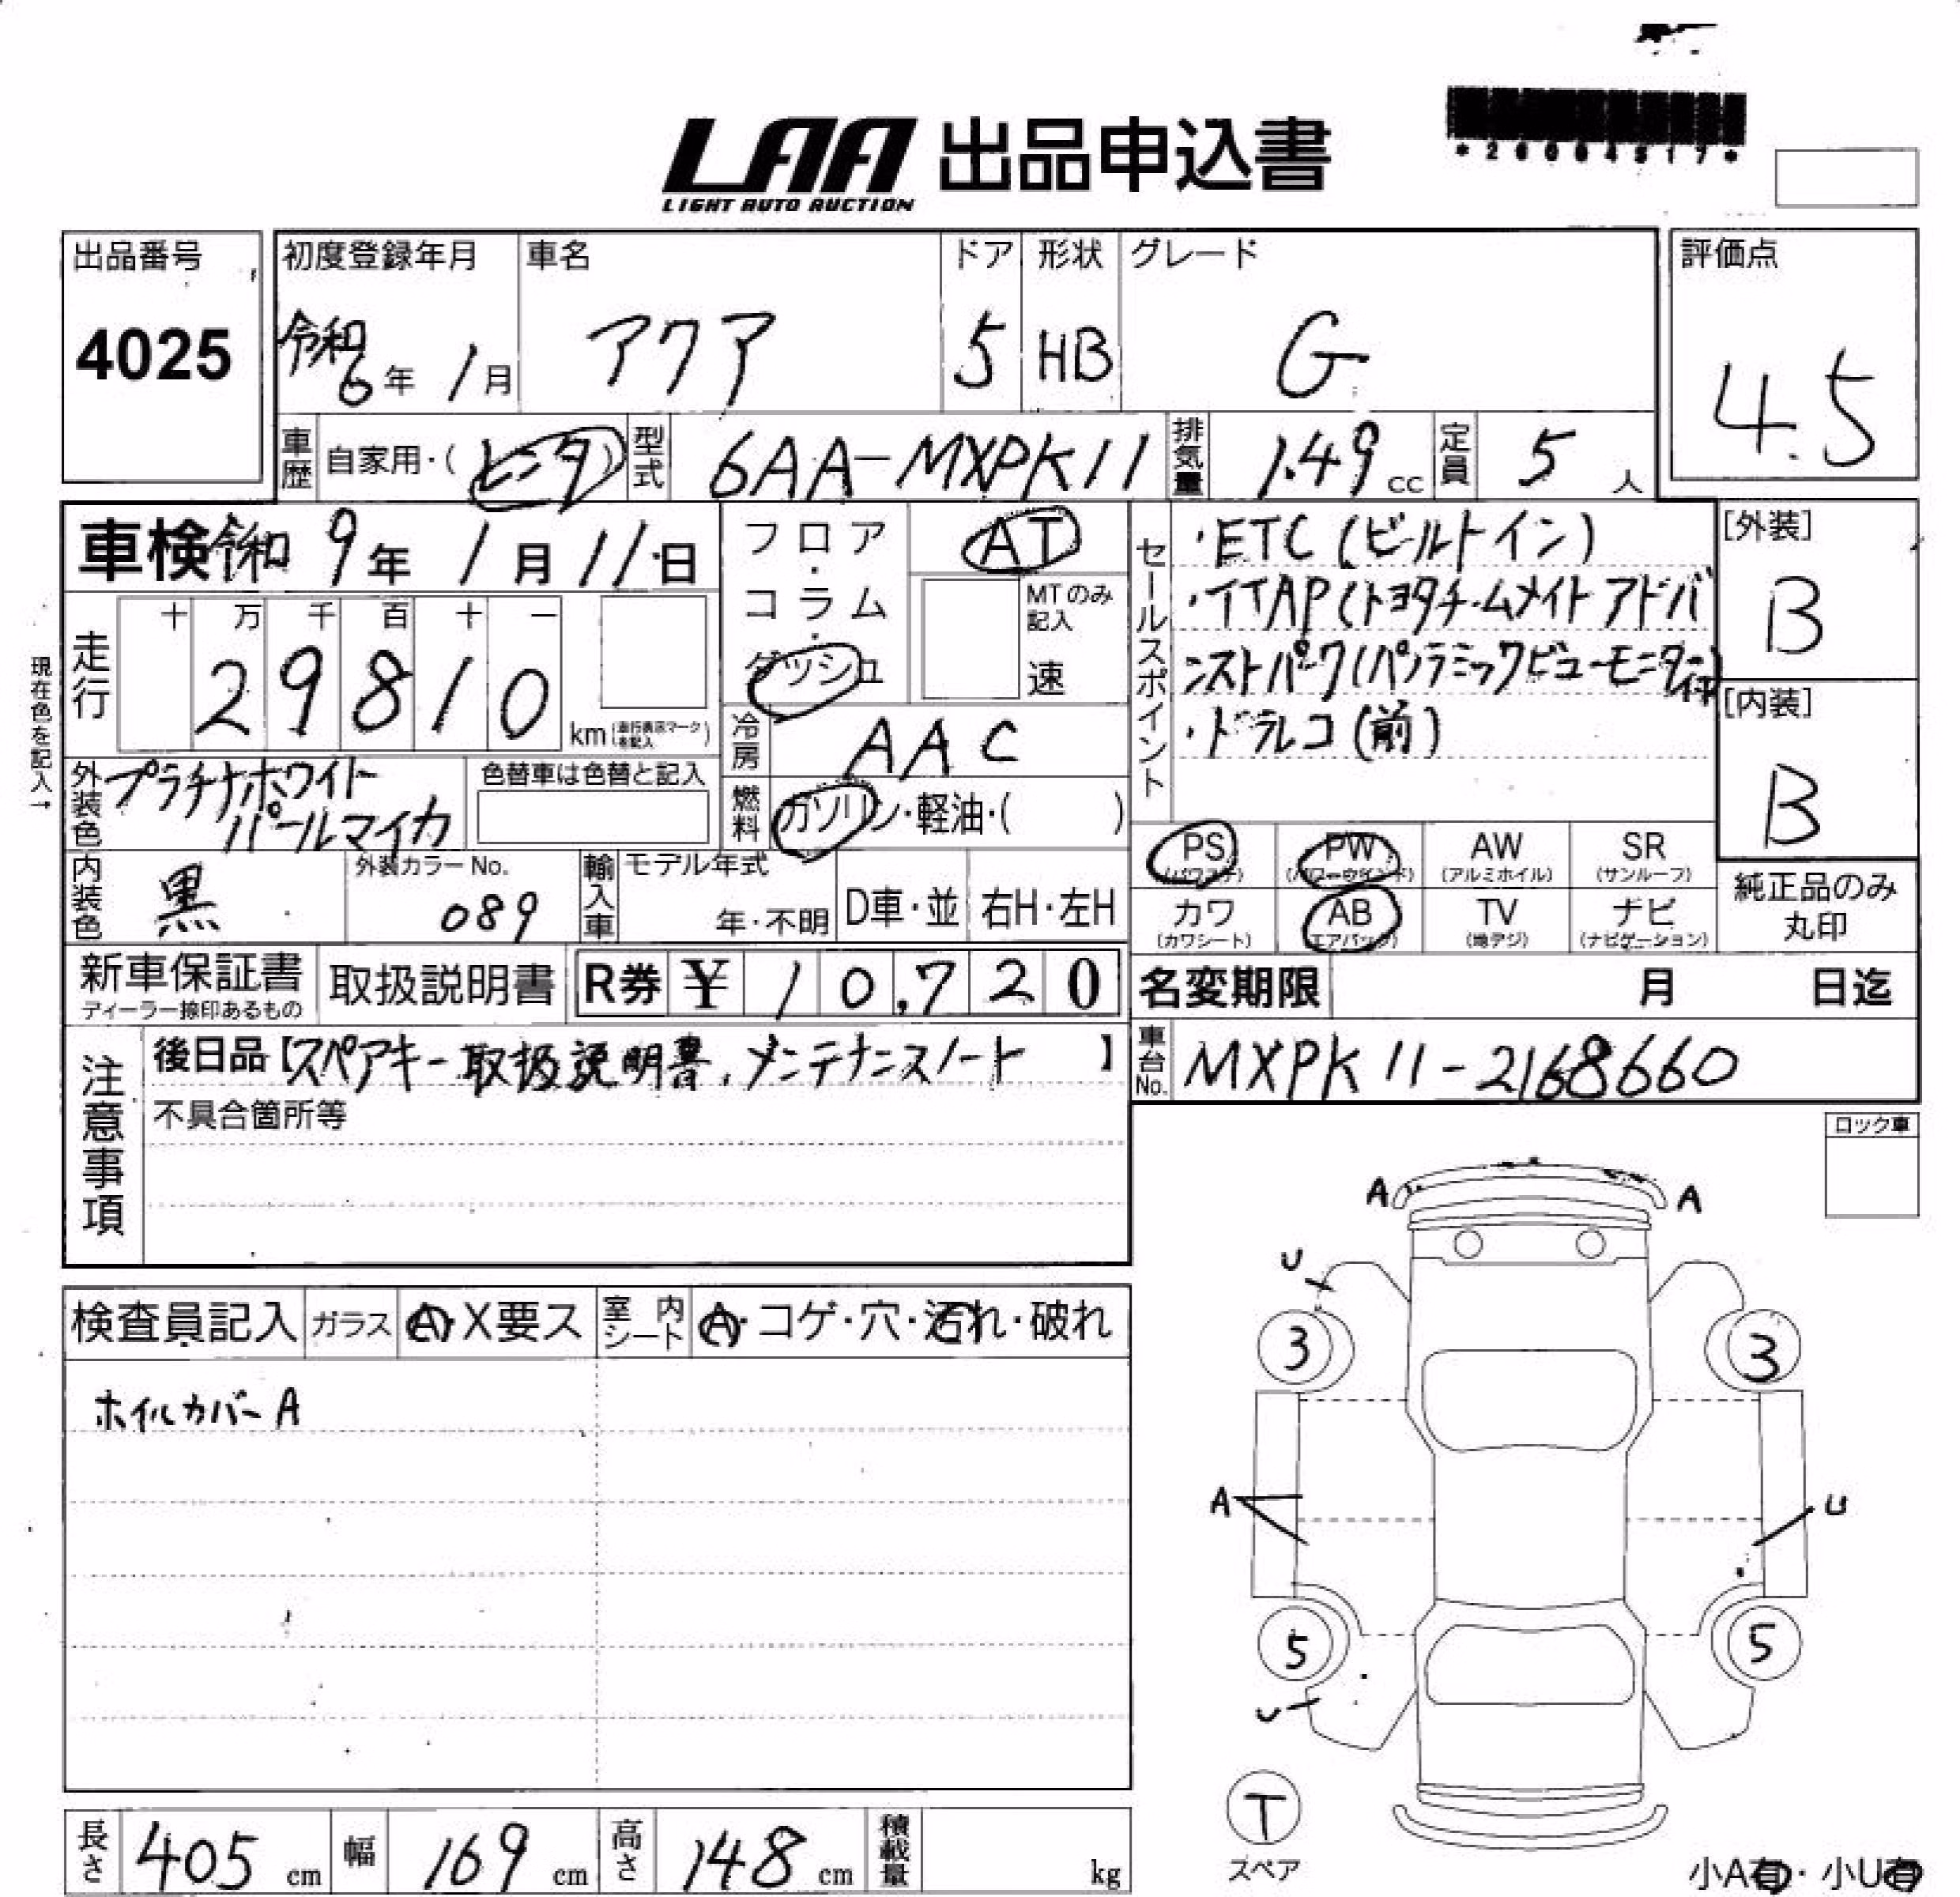 LAA 出品申込書
LIGHT AUTO AUCTION
出品番号
4025
初度登録年月
令和6年1月
車名
アクア
ドア
5
形状
HB
グレード
G
評価点
4.5
車歴 自家用・(レンタ)
型式 6AA-MXPK11
排気量 1.49cc
定員 5人
車検 令和9年1月11日
現在色を記入→
走行
十 万 千 百 十 一
29810 km
フロア・コラム・ダッシュ
AT
MTのみ記入
速
冷房 AAC
燃料 ガソリン・軽油・( )
セールスポイント
・ETC(ビルトイン)
・TTAP(トヨタチームメイト アドバ
ンストパーク(パノラミックビューモニター付)
・ドラレコ(前)
[外装]
B
[内装]
B
外装色 プラチナホワイト
パールマイカ
色替車は色替と記入
内装色 黒
外装カラーNo.
089
輸入車 モデル年式
年・不明
D車・並
右H・左H
PS
(パワステ)
PW
(パワーウインド)
AW
(アルミホイル)
SR
(サンルーフ)
カワ
(カワシート)
AB
(エアバック)
TV
(地デジ)
ナビ
(ナビゲーション)
純正品のみ
丸印
新車保証書
ディーラー捺印あるもの
取扱説明書
R券 ¥10,720
名変期限 月 日迄
車台No. MXPK11-2168660
注意事項
後日品【スペアキー取扱説明書、メンテナンスノート】
不具合箇所等
ロック車
検査員記入
ガラス A・X要ス
室内シート A・コゲ・穴・汚れ・破れ
ホイルカバーA
A
A
U
3
3
A
U
5
5
U
T
スペア
長さ 405cm
幅 169cm
高さ 148cm
積載量 kg
小A有・小U有